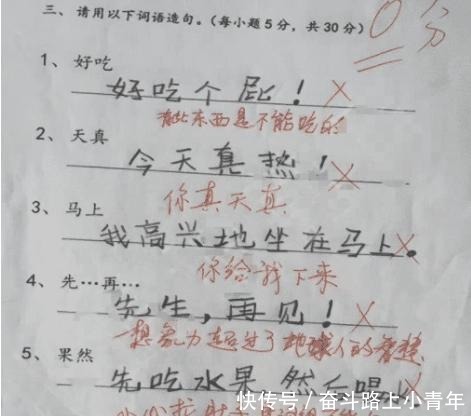 三、请用以下词语造句。(每小题5分，共30分)
0分
1、好吃
好吃个屁！
有些东西是不能吃的
2、天真
今天真热！
你真天真
3、马上
我高兴地坐在马上。
你给我下来
4、先…再…
先生，再见！
想象力超过了地球人的智慧
5、果然
先吃水果然后喝
快传号/奋斗路上小青年